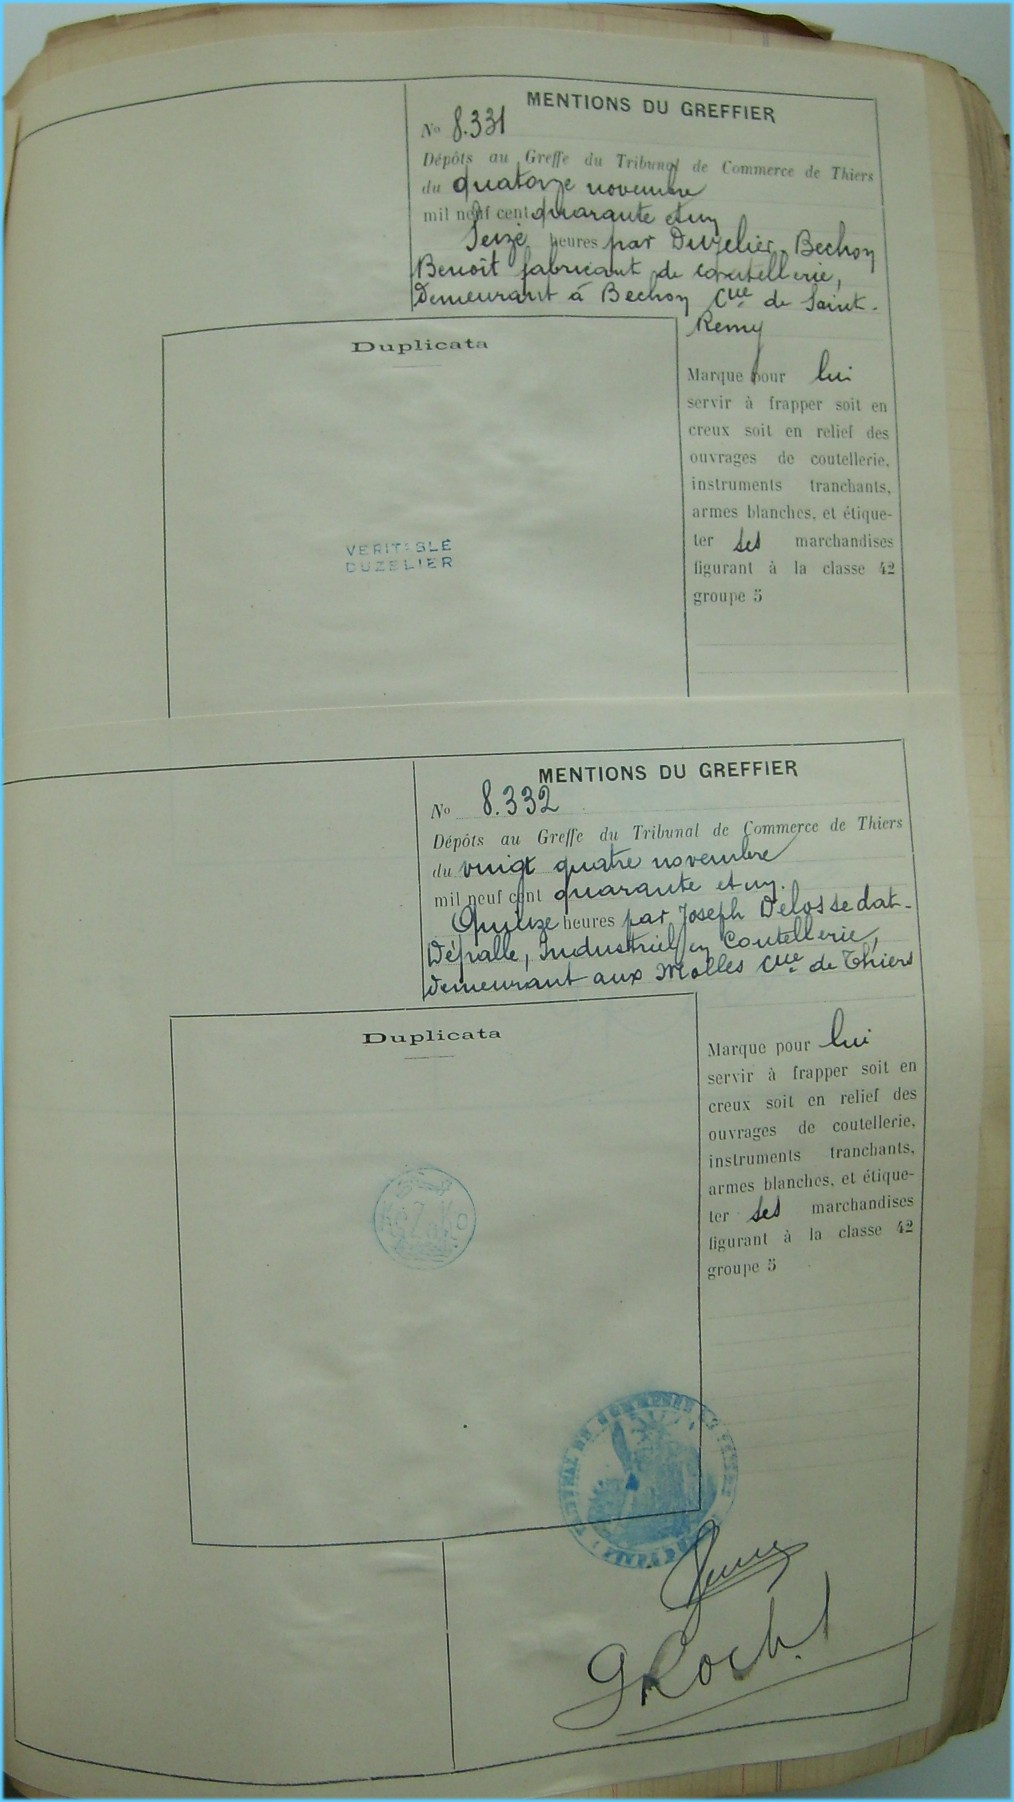 MENTIONS DU GREFFIER
No 8.331
Dépôts au Greffe du Tribunal de Commerce de Thiers
du quatorze novembre
mil neuf cent quarante et un
Seize heures par Duzelier-Bechon
Benoît fabricant de coutellerie,
Demeurant à Bechon Cue de Saint-
Remy
Duplicata
VERITABLE
DUZELIER
Marque pour lui
servir à frapper soit en
creux soit en relief des
ouvrages de coutellerie,
instruments tranchants,
armes blanches, et étique-
ter ses marchandises
figurant à la classe 42
groupe 5
MENTIONS DU GREFFIER
No 8.332
Dépôts au Greffe du Tribunal de Commerce de Thiers
du vingt quatre novembre
mil neuf cent quarante et un.
Quinze heures par Joseph Delossedat-
Dépalle, Industriel en Coutellerie,
Demeurant aux Molles Cue de Thiers
Duplicata
KoZaKo
Marque pour lui
servir à frapper soit en
creux soit en relief des
ouvrages de coutellerie,
instruments tranchants,
armes blanches, et étique-
ter ses marchandises
figurant à la classe 42
groupe 5